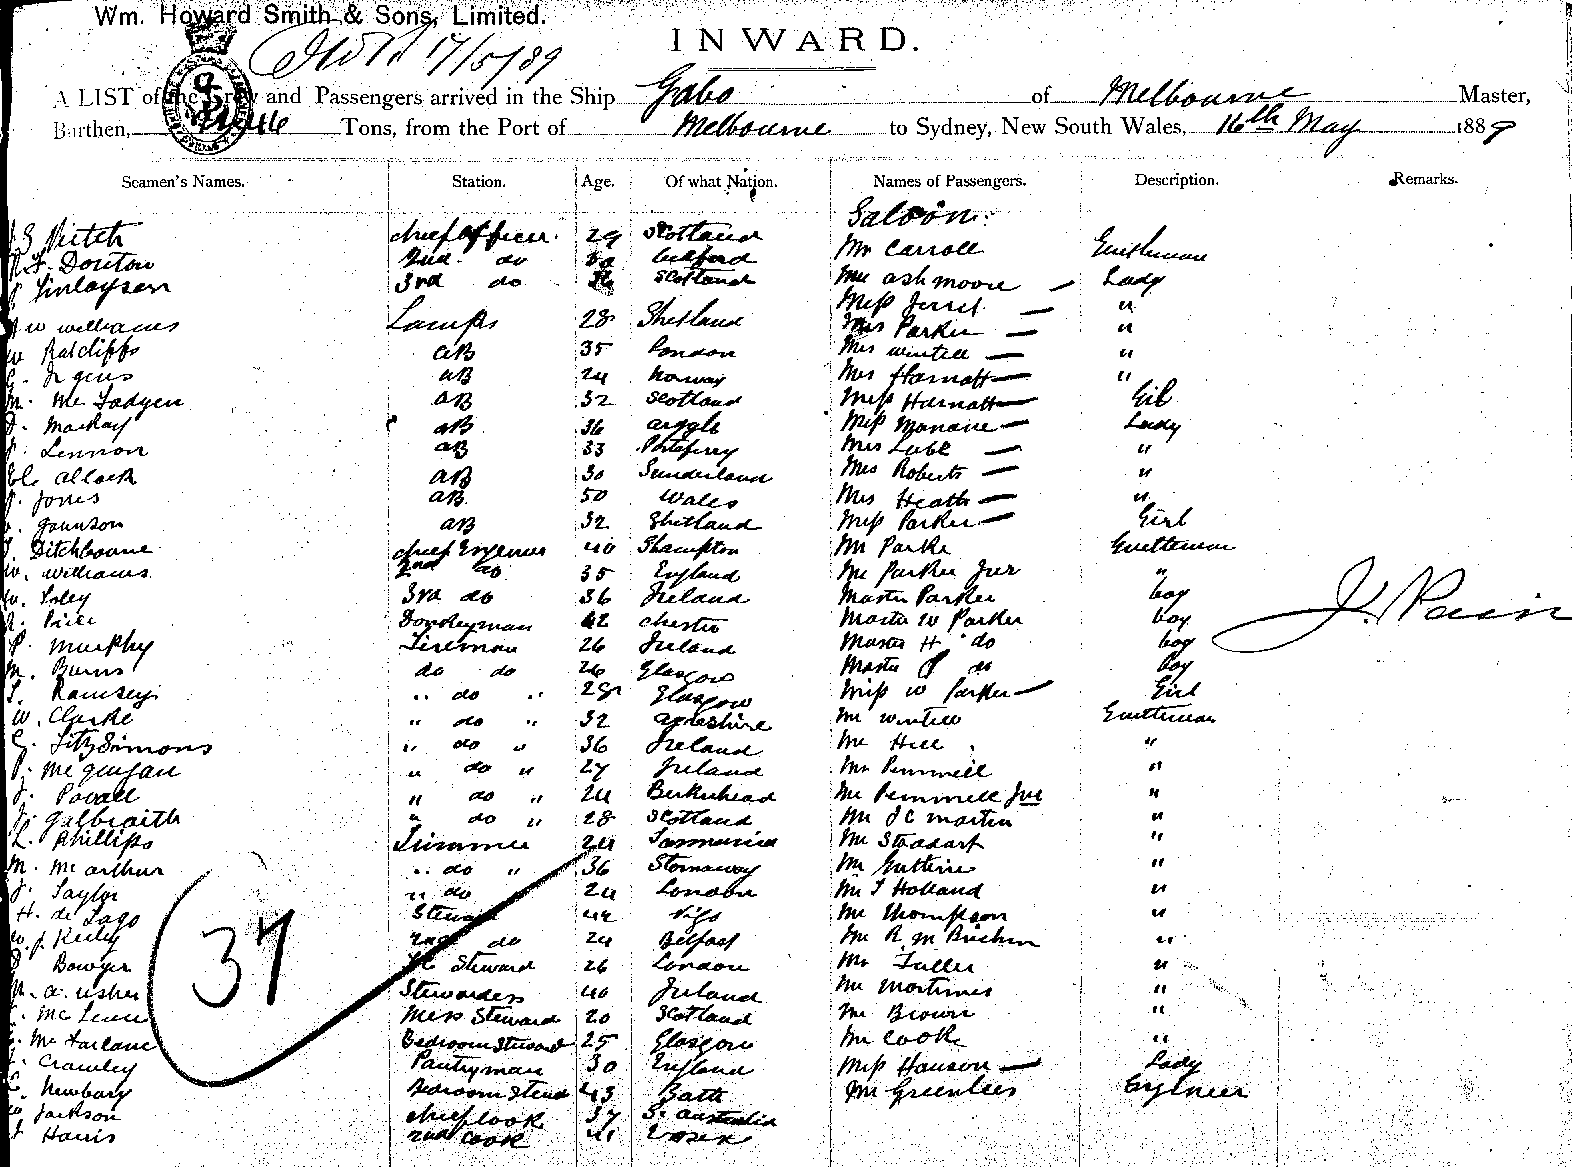 Wm. Howard Smith & Sons, Limited.
17/5/89
INWARD.
A LIST of the Crew and Passengers arrived in the Ship Gabo of Melbourne Master,
Burthen, Tons, from the Port of Melbourne to Sydney, New South Wales, 16th May 1889
Seamen's Names. Station. Age. Of what Nation. Names of Passengers. Description. Remarks.
Saloon.
Veitch chief officer. 29 Scotland Mr Carroll Gentleman
Douton 2nd do Mrs ashmoore — Lady
Finlayson 3rd do Scotland Miss — "
W Williams Lamps 28 Shetland Mrs Parker — "
W Ratcliffe AB 35 London Mrs Wintell — "
AB 24 Norway Mrs Harnatt — "
M. Mc Fadyen AB 32 Scotland Miss Harnatt — Girl
Mackay AB 36 argyle Miss — Lady
Lennon AB 33 Portaferry Mrs — "
AB 30 Sunderland Mrs Roberts — "
Jones AB 50 Wales Mrs Heath — "
Johnson AB 32 Shetland Miss Parker — Girl
Ditchbourne chief Engineer 40 Shampton Mr Parker Gentleman
W. Williams 2nd do 35 England Mr Parker Jur "
W. 3rd do 36 Ireland Master Parker boy
Price Donkeyman 42 chester Master W Parker boy
P. Murphy Fireman 26 Ireland Master H. do boy
M. Burns do do 26 Glasgow Master do boy
Ramsey " do " 28 Glasgow Miss W Parker — Girl
W. Clarke " do " 32 ayreshire Mr Wintell Gentleman
FitzSimons " do " 36 Ireland Mr Hill "
Mc Guigan " do " 27 Ireland Mr Pemmell "
Povall " do " 24 Berkenhead Mr Pemmell Jur "
Galbraith " do " 28 Scotland Mr J C Martin "
L. Phillips Trimmer 24 Tasmania Mr Stodart "
M. Mc arthur " do " 36 Stornaway Mr Guthrie "
J. Taylor " do 24 London Mr T Holland "
H. de Lago Steward 42 Vigo Mr Thompson "
W. J. Keely 2nd do 24 Belfast Mr R M "
Bowyer Steward 26 London Mr Fuller "
a. Usher Stewardess 40 Ireland Mr Mortimer "
Mc Lean Mess Steward 20 Scotland Mr Brown "
Mc Farlane Bedroom Steward 25 Glasgow Mr Cook "
Crawley Pantryman 30 England Miss Hanson — Lady
Newbury Bedroom Steward 43 Bath Mr Greenlees Engineer
Jackson chief Cook 37 S. australia
Harris 2nd Cook 41 Essex
37
J. Pain